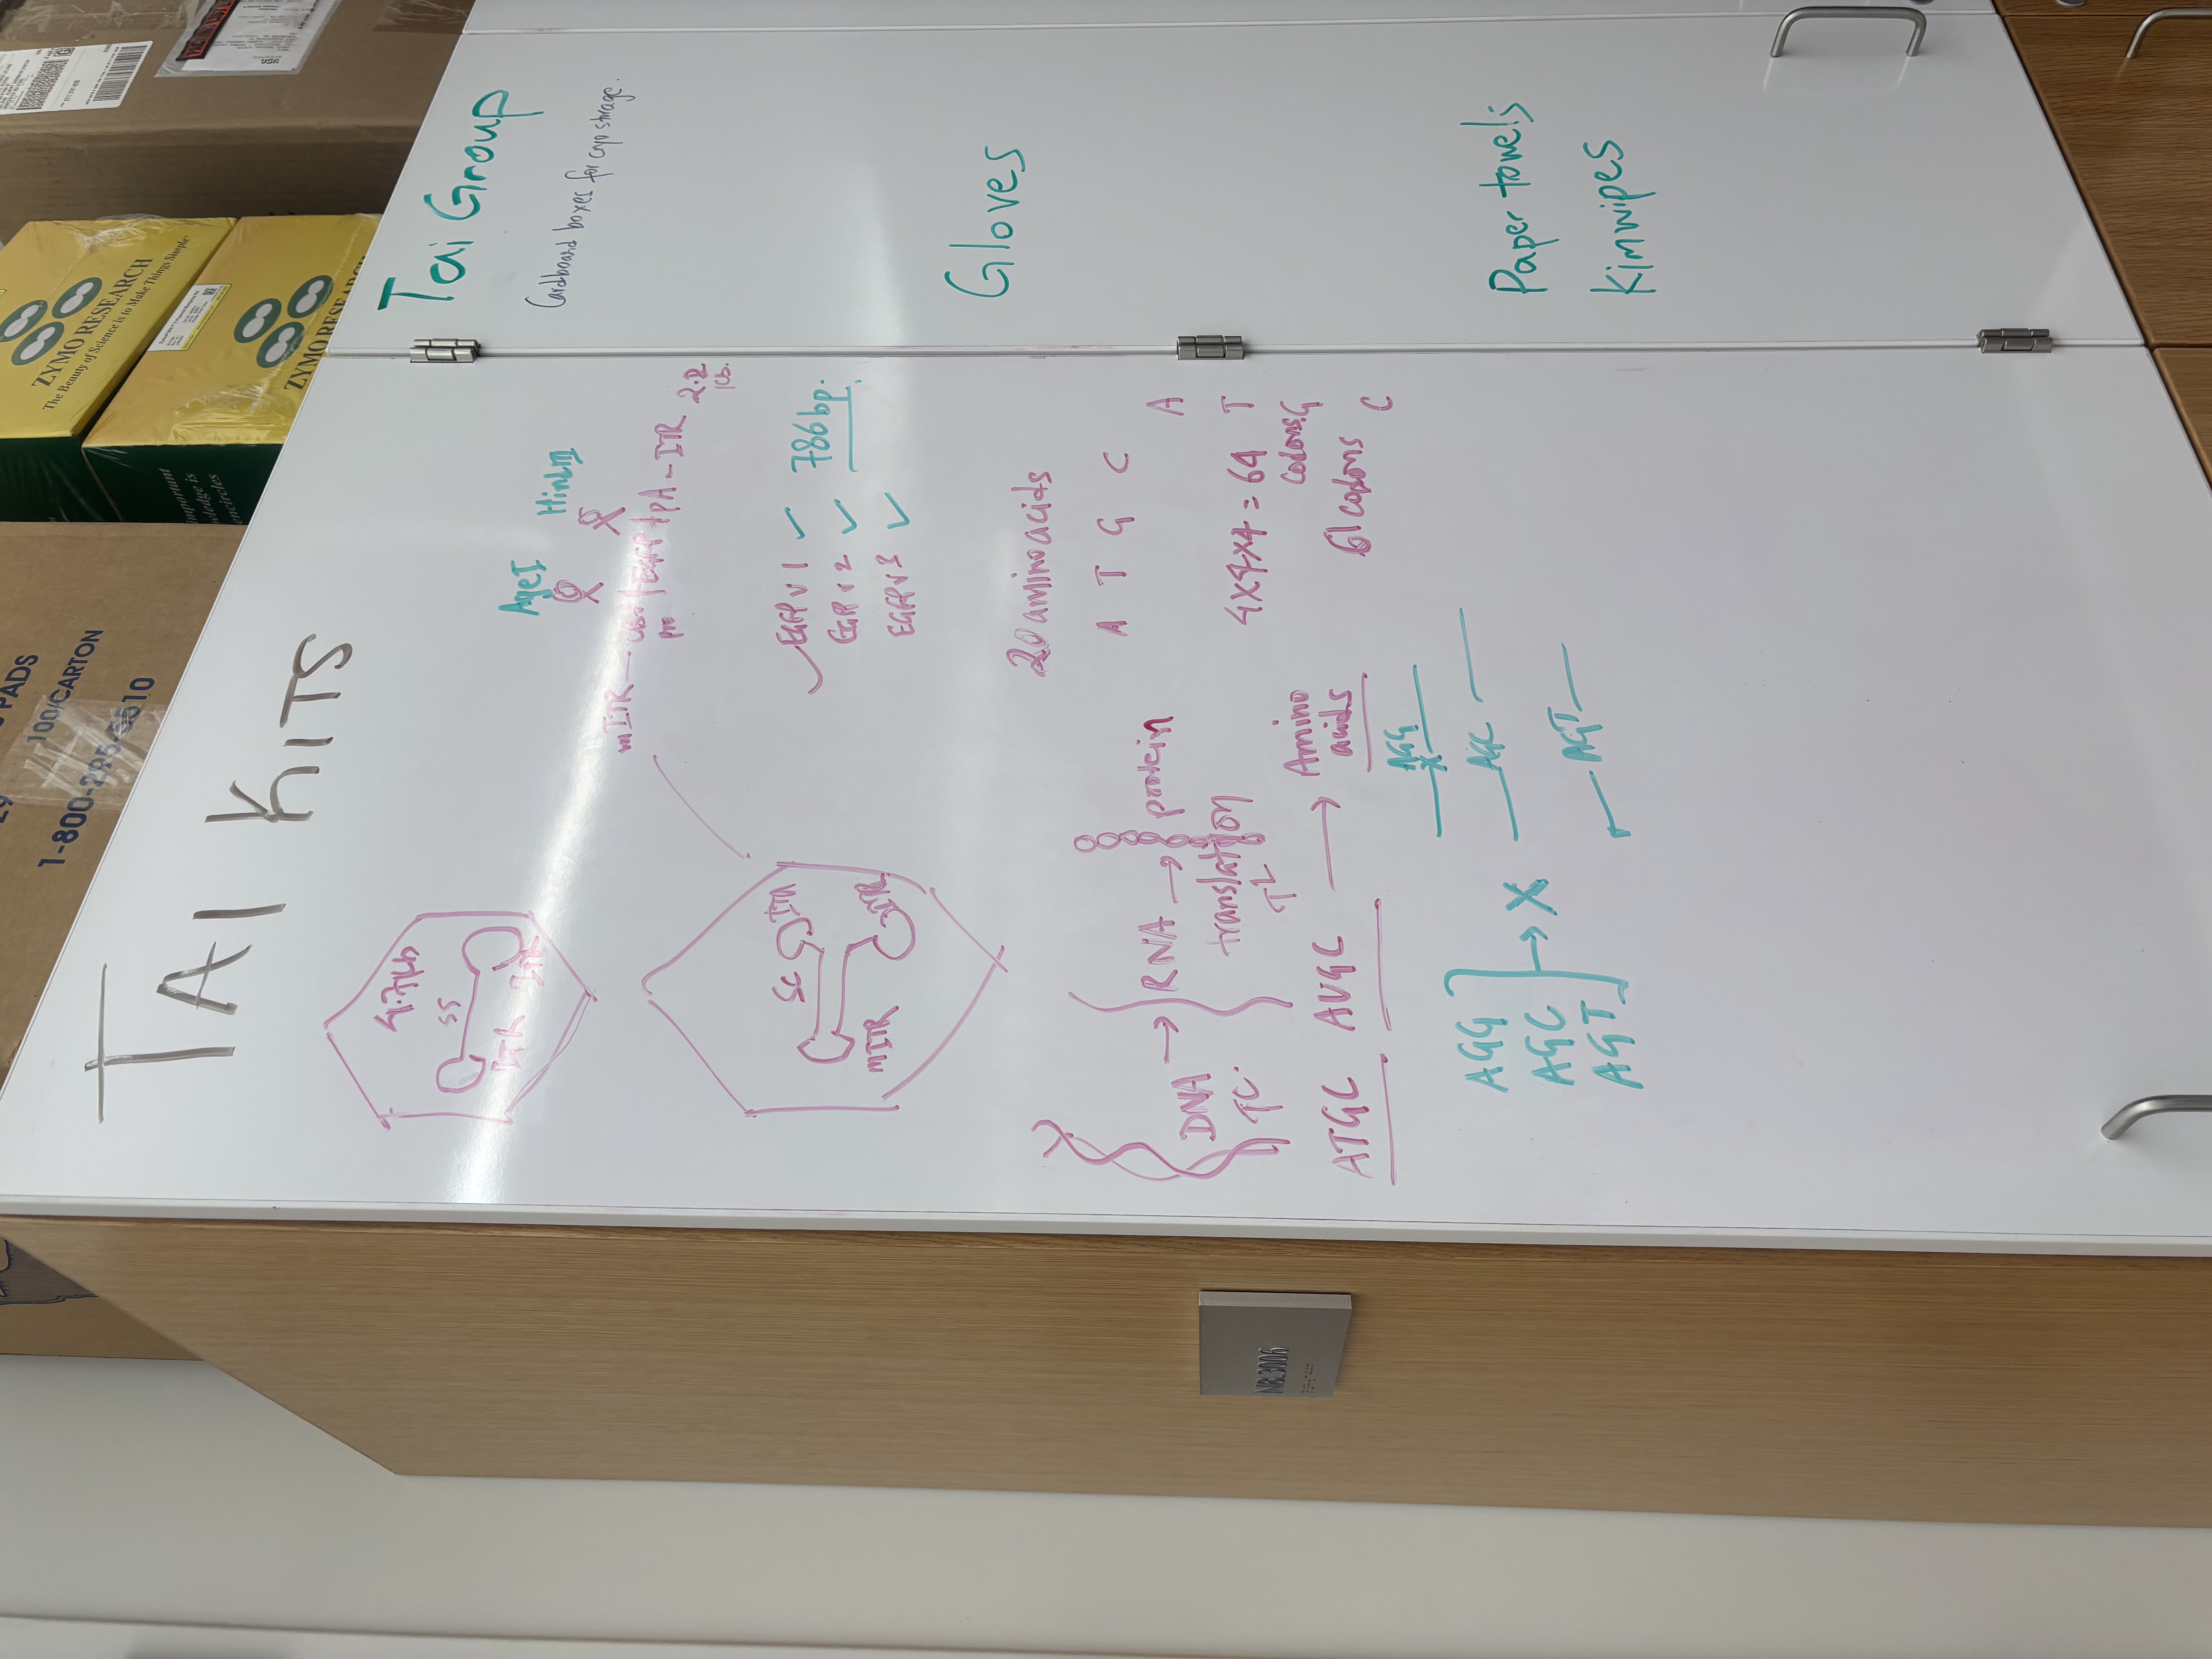 TAI KITS
4.7kb
ss
ITR
ITR
sc
ITR
ITR
mITR
AgeI
HindIII
mITR
EGFP
pA-ITR
2.2
kb.
EGFP v1
EGFP v2
EGFP v3
786 bp.
DNA → RNA → protein
TC.
translation
TL
ATGC AUGC → Amino
acids
20 amino acids
A T G C
A
T
G
C
4x4x4 = 64
codons
61 codons
AGG
AGC
AGT
→ X
AGG
AGC
AGT
Tai Group
Cardboard boxes for cryo storage.
Gloves
Paper towels
Kimwipes
ZYMO RESEARCH
The Beauty of Science is to Make Things Simple
ZYMO RESEARCH
important
wledge is
encircles
PADS
100/CARTON
1-800-295-5510
NBL3006